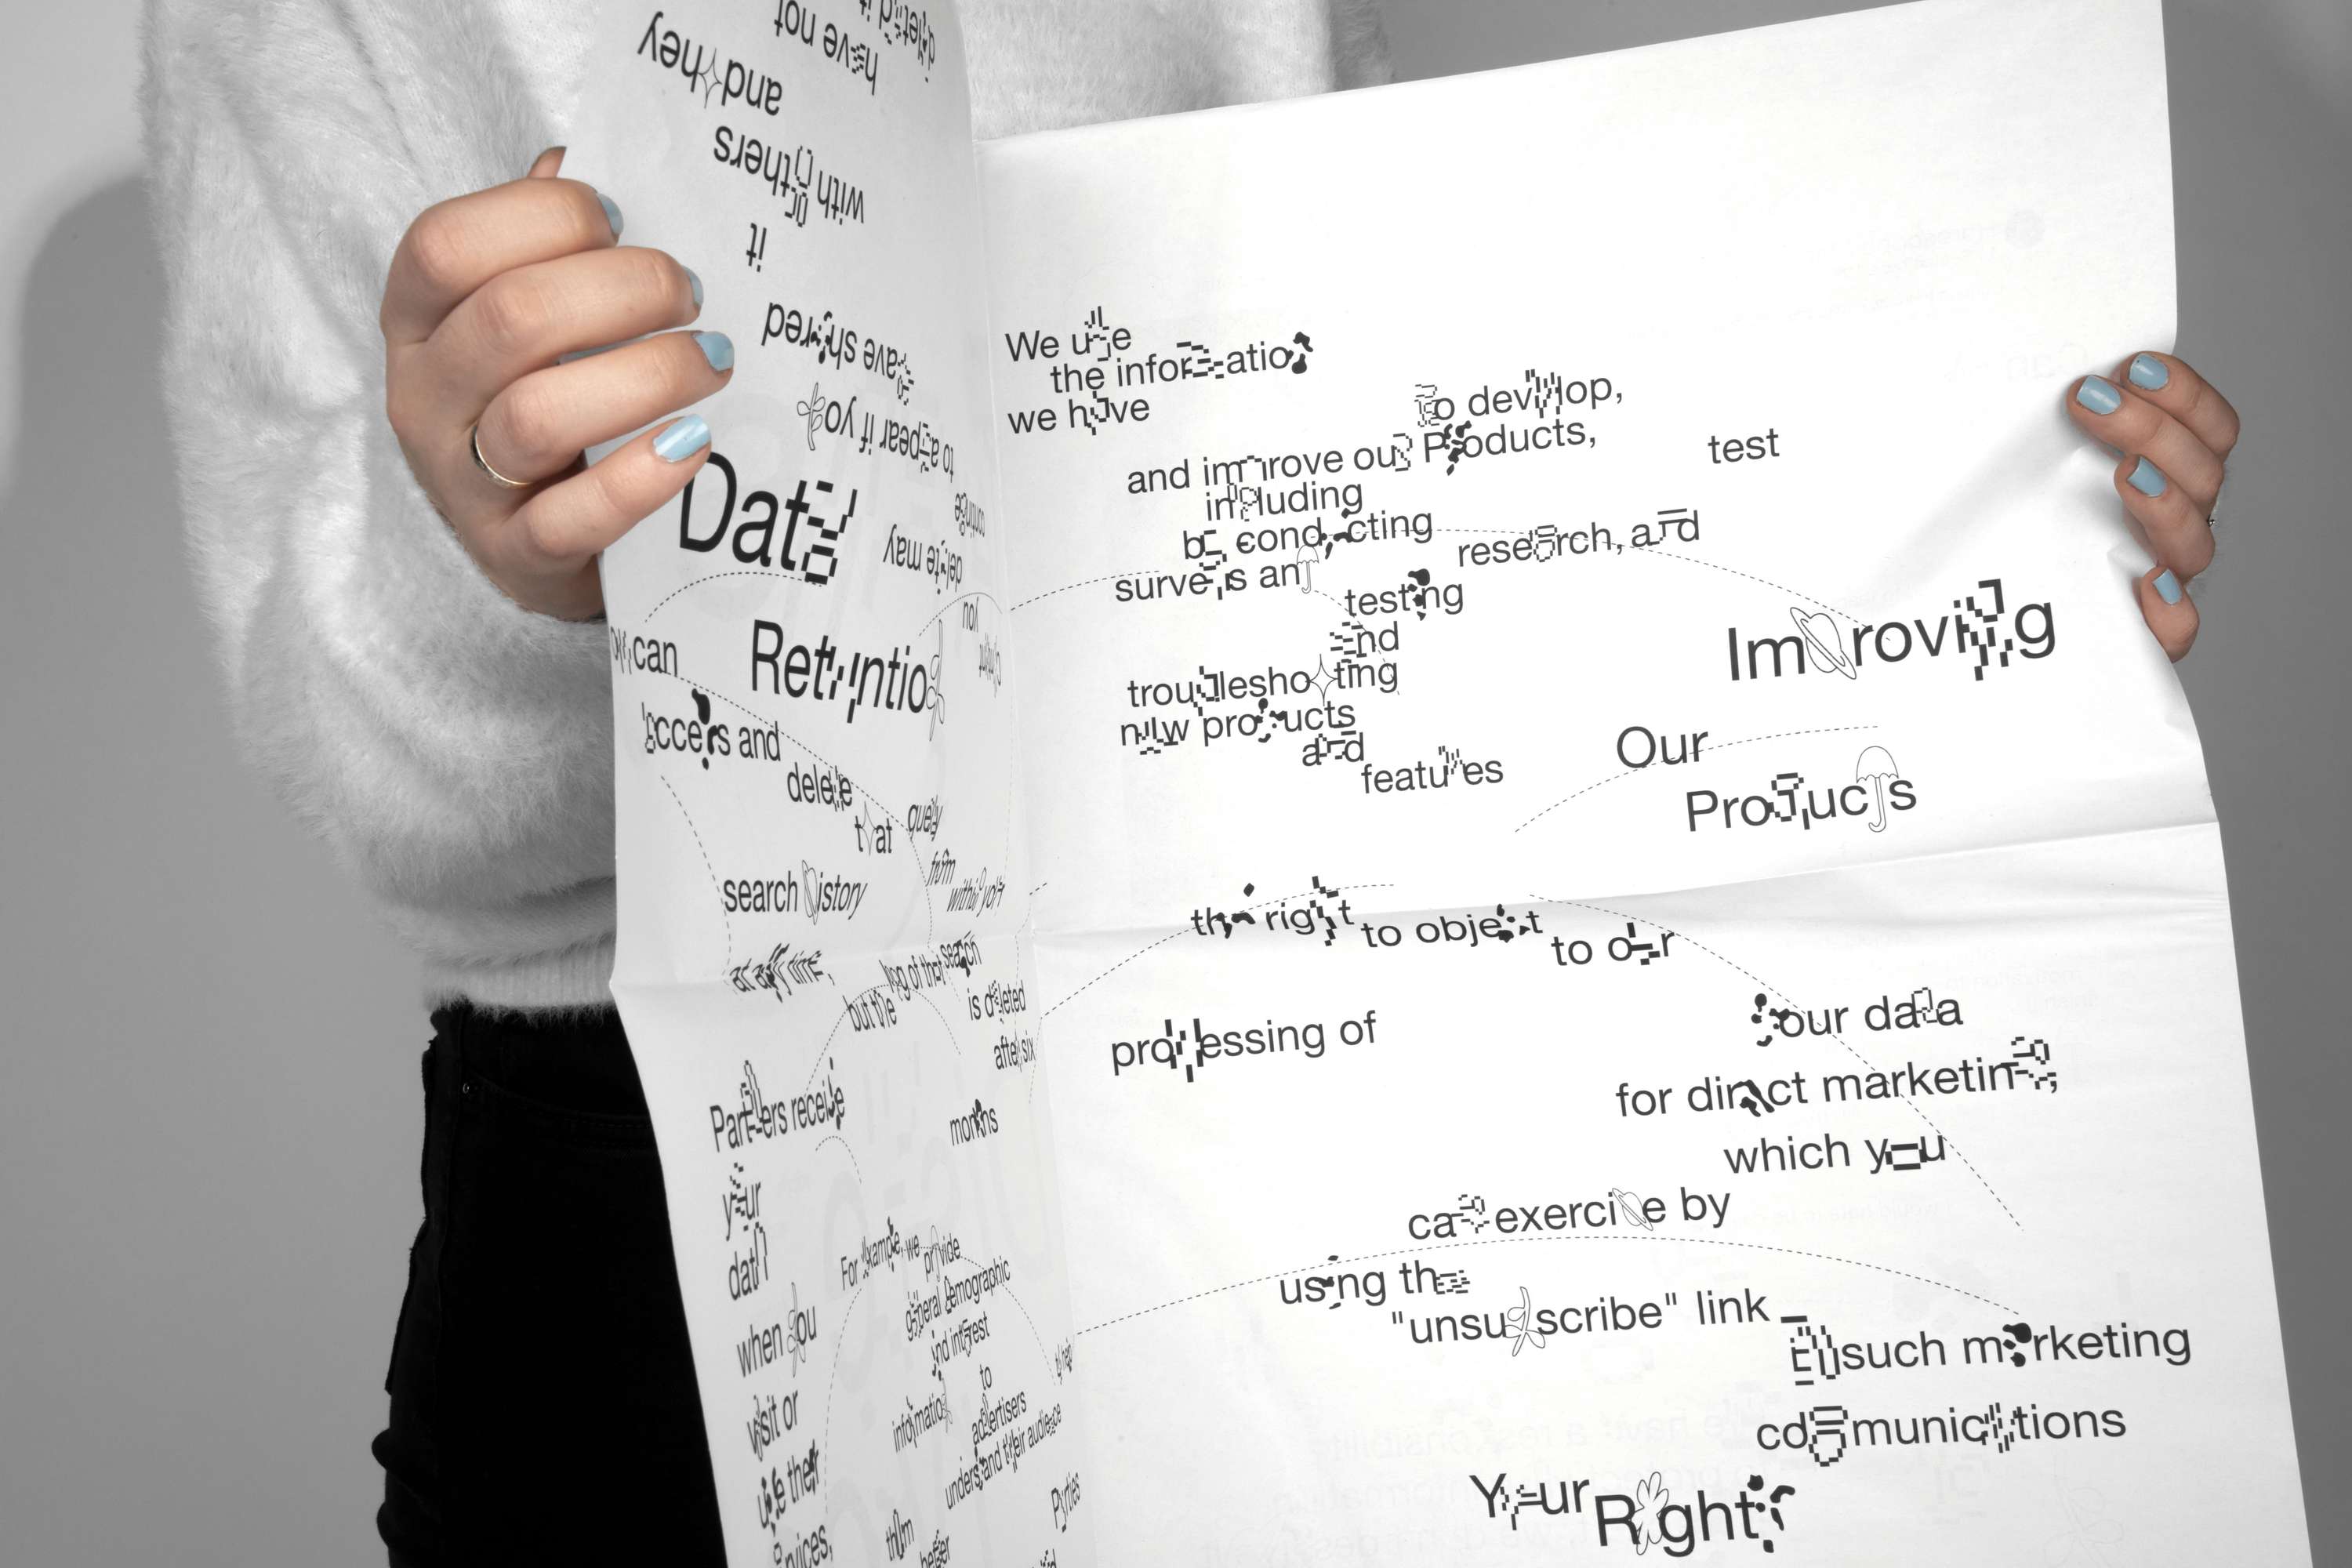 and they
have not
with others
it
have shared
to appear if you
delete may
Data
Retention
can
access and
delete
that
query
from
within your
search history
at any time,
but the
log of that search
is deleted
after six
months
Partners receive
your
data
when you
visit or
use their
For example, we provide
general demographic
and interest
information
to
advertisers
understand their audience
them
better
Parties
We use
the information
we have
to develop,
and improve our Products,
test
including
by conducting
research, and
surveys and
testing
and
troubleshooting
new products
and
features
Improving
Our
Products
the right to object to our
processing of
your data
for direct marketing,
which you
can exercise by
using the
"unsubscribe" link
in such marketing
communications
Your Rights